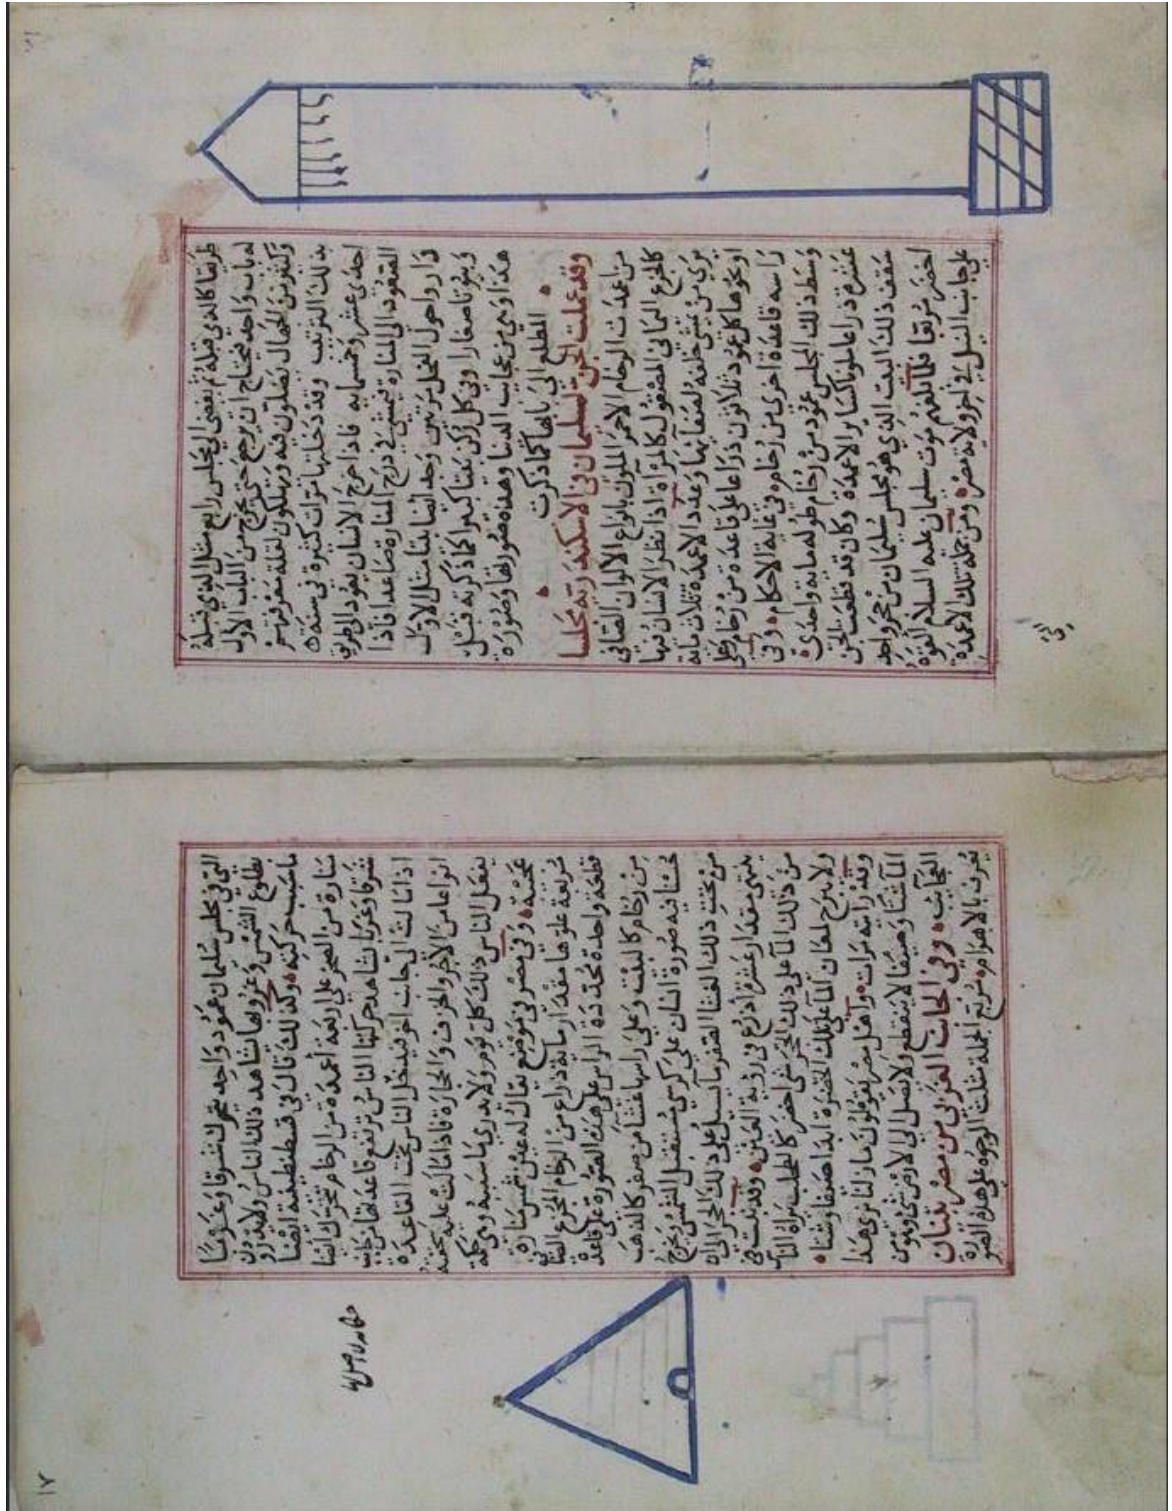 طريقا كالذي قبله ثم يفضي الى مجلس رابع مثال الذي قبله
له باب واحد فيحتاج ان يرجع حتى يخرج من الباب الاول
وكثير من الجهال يضلون فيه ويهلكون لقلة معرفتهم
بذلك الترتيب وقد دخلتها مرات كثيرة في سنة
احدى عشر وخمسمايه فاذا خرج الانسان يعود الى طريق
الصعود الى المنارة فيمشي في درج المنارة صاعدا فاذا
دار حول الفحل مرتين وجد ايضا بيتا مثل الاول
وبيوتا صغارا وفي كل ركن بيتا كبيرا كما ذكرته قبل
هذا وهي من عجايب الدنيا وهذه صورتها وصورة
القطع الى بابها كما ذكرت
وقد عملت الجن لسليمان في الاسكندرية مجلسا
من اعمدة الرخام الاحمر الملون بانواع الالوان الصافي
كالجزع اليماني المصقول كالمرآة اذا نظر الانسان فيها
يرى من يمشي خلفه لصفائها وعدد الاعمدة ثلاث ماية
او نحوها كل عمود ثلاثون ذراعا على قاعدة من رخام وعلى
راسه قاعدة اخرى من رخام في غاية الاحكام وفي
وسط ذلك المجلس عمود من رخام طوله ماية واحدى
عشرة ذراعا ملونا كساير الاعمدة وكان قد قطعت الجن
سقف ذلك البيت الذي هو مجلس سليمان من حجر واحد
اخضر مربعا فلما بلغهم موت سليمان عليه السلام القوه
على جانب النيل في اخر ولاية مصر ومن جملة تلك الاعمدة
التي
١٧
التي في مجلس سليمان عمود واحد يتحرك شرقا وغربا
بطلوع الشمس وغروبها يشاهد ذلك الناس ولا يدرون
ما سبب حركته وكذلك قال في قسطنطينية ايضا
منارة من الصخر على اربعة اعمدة من الرخام تتحرك ايضا
شرقا وغربا يشاهد حركتها الناس ترتفع قاعدتها من جانب
اذا مالت الى جانب اخر فيدخل الناس تحت القاعدة
انواعا من الاجر والخزف والحجارة فاذا مالت عليه سحقته
يفعل الناس ذلك كل يوم ولا يدرى ما سببه وهي جملة
عجيبة وفي مصر في موضع يقال له عين شمس منارة
مربعة علوها مقدار ماية ذراع من الرخام المجزع
قطعة واحدة محددة الراس على هذه الصورة على قاعدة
من رخام كالبيت وعلى راسها غشا من صفر كالذهب
حسنا فيه صورة انسان على كرسي مستقبل الشمس ويخرج
من تحت ذلك الغشا الصفر ما يسيل على ذلك الحجر الى ان
ينتهي مقدار عشرة اذرع في رؤية العين وقد نبت
من ذلك الما على ذلك الحجر شي اخضر كالطحلب يراه الناس
ولا يبرح لمعان الما على تلك الخضرة ابدا صيفا وشتاء
وقد رايته مرات واهل مصر يقولون ما زلنا نرى هذا
الما شتا وصيفا لا ينقطع ولا يصل الى الارض شي وهو من
العجايب وفي الجانب الغربي من مصر بنيان
يعرف بالاهرام مربع الجملة مثلث الوجوه على هذه الصورة